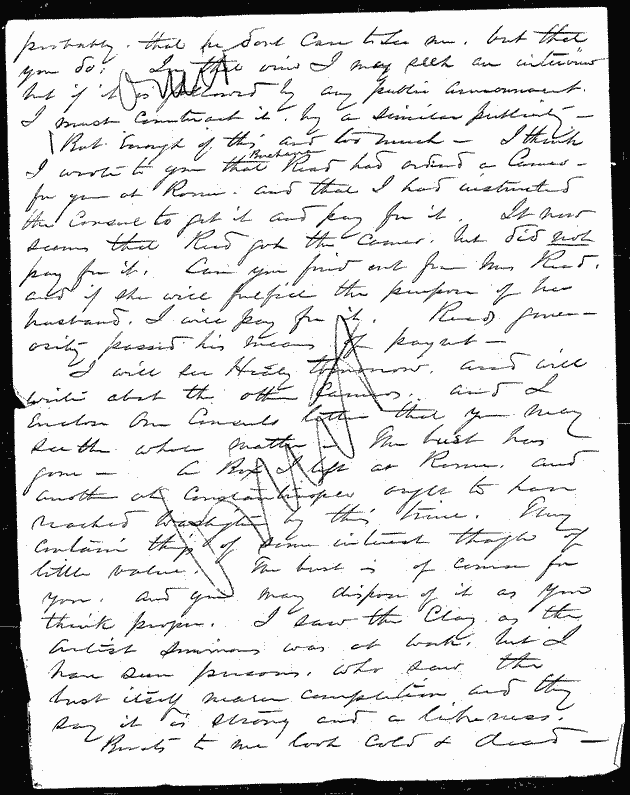 probably. that he dont care to see me. but that
you do; In that view I may seek an interview
but if it is followed by any public announcement.
I must counteract it. by a similar publicity —
But enough of this and too much — I think
Buchanan
I wrote to you that Read had ordered a Cameo —
for you at Rome. and that I had instructed
the Consul to get it and pay for it. It now
seems that Read got the Cameo. but did not
pay for it. Can you find out from Mrs Read.
and if she will fulfill the purpose of her
husband. I will pay for it. Reads gener—
osity passed his means of payment —
I will see Healy tomorrow. and will
write about the other Cameos. and I
Enclose our Consuls letter that you may
see the whole matter — The bust has
gone — A Box I left at Rome. and
another at Constantinople ought to have
reached Washington by this time. They
contain things of some interest though of
little value. The bust is of course for
you. and you may dispose of it as you
think proper. I saw the Clay as the
artist Simmons was at work. but I
have seen persons. who saw the
bust itself nearer completion and they
say it is strong and a likeness.
Busts to me look cold & dead —